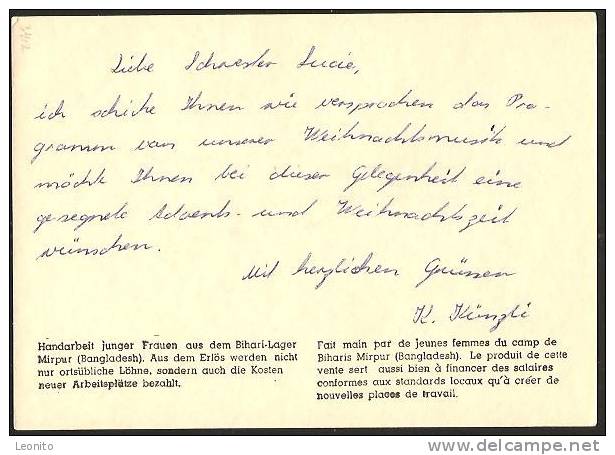 Liebe Schwester Lucie,
ich schicke Ihnen wie versprochen das Pro-
gramm von unserer Weihnachtsmusik und
möchte Ihnen bei dieser Gelegenheit eine
gesegnete Advents- und Weihnachtszeit
wünschen.
Mit herzlichen Grüssen
K. Künzli
Handarbeit junger Frauen aus dem Bihari-Lager
Mirpur (Bangladesh). Aus dem Erlös werden nicht
nur ortsübliche Löhne, sondern auch die Kosten
neuer Arbeitsplätze bezahlt.
Fait main par de jeunes femmes du camp de
Biharis Mirpur (Bangladesh). Le produit de cette
vente sert aussi bien à financer des salaires
conformes aux standards locaux qu'à créer de
nouvelles places de travail.
Leonito
delcampe.net